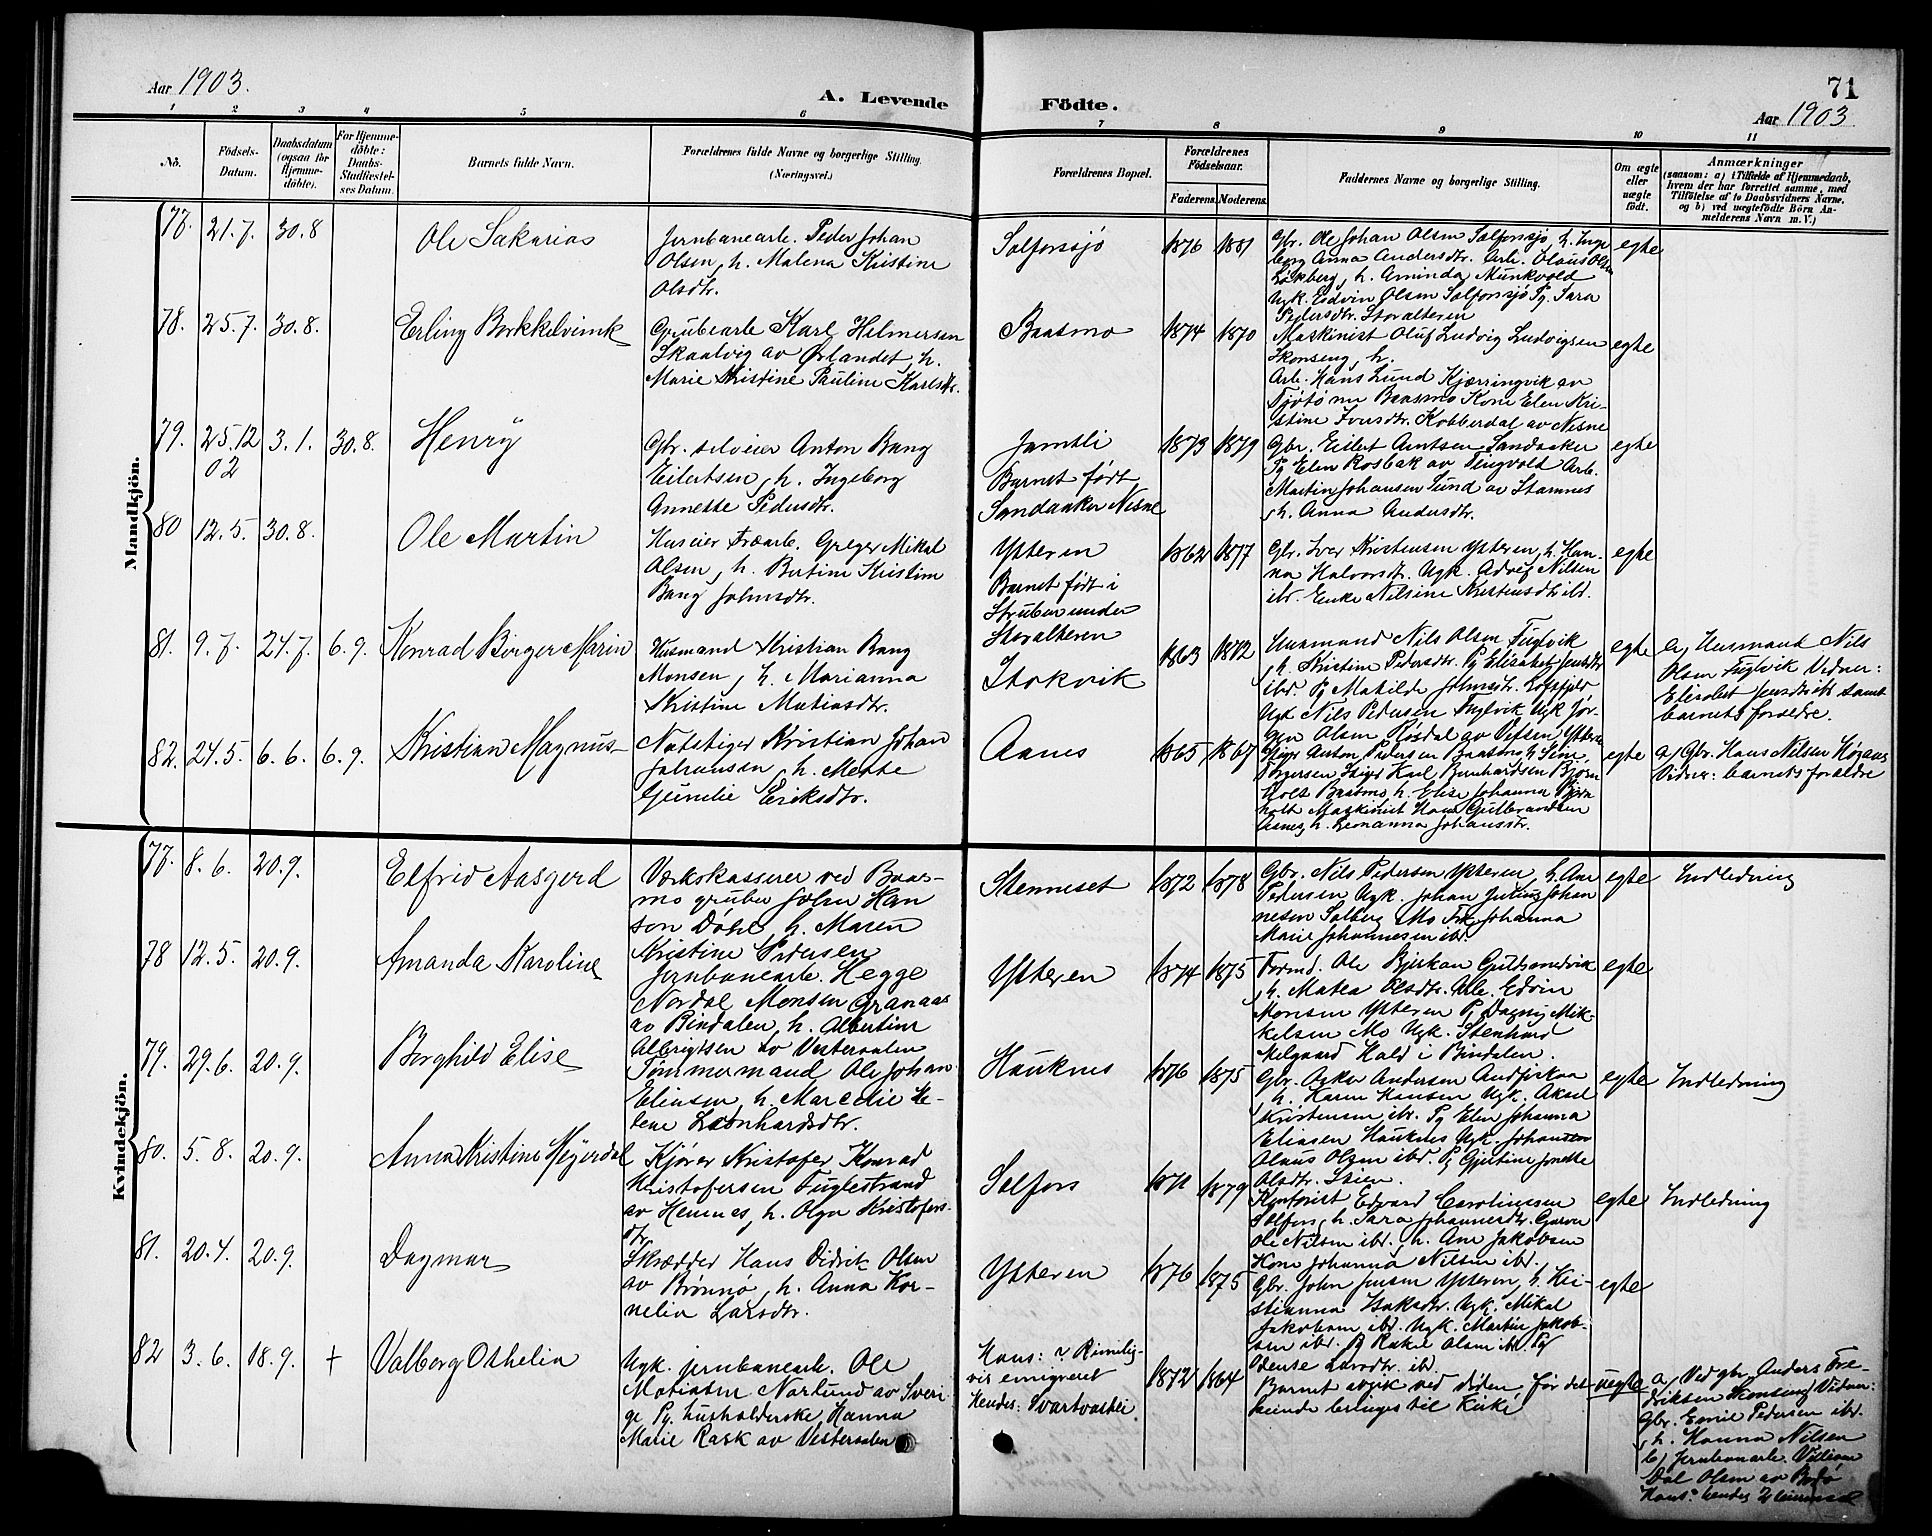 Aar 1903.
A. Levende
Födte.
71
Aar 1903
1 2 3 4 5 6 7 8 9 10 11
No.
Födsels-
Datum.
Daabsdatum
(ogsaa for
Hjemme-
döbte).
For Hjemme-
döbte:
Daabs-
Stadfæstel-
ses Datum.
Barnets fulde Navn.
Forældrenes fulde Navne og borgerlige Stilling.
(Næringsvei.)
Forældrenes Bopæl.
Forældrenes
Födselsaar.
Faderens. Moderens.
Faddernes Navne og borgerlige Stilling.
Om ægte
eller
uægte
født.
Anmærkninger
(saasom: a) i Tilfælde af Hjemmedaab,
hvem der har forrettet samme, med
Tilföielse af to Daabsvidners Navne,
og b) ved uægtefödte Börn An-
melderens Navn m. V.)
Mandkjön.
77. 21.7. 30.8 Ole Sakarias
Jernbanearb. Peder Johan
Olsen, h. Malena Kristine
Olsdtr.
Selforssjø 1876 1881
Gbr. Ole Johan Olsen Selforssjø, h. Inge
borg Anna Andersdtr. Arb. Olaus Olsen
h. Aminda Munkvold
Ugk. Edvin Olsen Selforssjø Pg. Sara
Pedersdtr. Storalteren
egte
78. 25.7. 30.8. Erling
Grubearb Karl Helmersen
Skaalvig av Ørlandet, h.
Marie Kristine Pauline Karlsdtr.
Baasmo 1874 1870
Maskinist Oluf Ludvig Ludvigsen
Skonseng, h.
Arb. Hans Lund Kjærringvik av
Tjøtø nu Baasmo Kone Elen Kri-
stine Iversdtr. Kobberdal av Nesne
egte
79. 25.12 02 3.1. 30.8. Henry
Gbr. selveier Anton Bang
Eilertsen, h. Ingeborg
Annette Pedersdtr.
Jamtli
Barnet født
Sandaaker Nesne
1873 1879
Gbr. Eilert Arntsen Sandaaker
Pg Elen Rosbak av Tingvold Arb.
Martin Johansen Sund av Stamnes
h. Anna Andersdtr.
egte
80 12.5. 30.8. Ole Martin
Huseier Træarb. Greger Mikal
Olsen, h. Bertine Kristine
Bang Johnsdtr.
Ytteren
Barnet født i
under
Storalteren
1862 1877
Gbr. Iver Kristensen Ytteren, h. Han-
na Halvorsdtr. Ugk. Adolf Nilsen
ibd. Enke Nilsine Kristensdtr ibd.
egte
81. 9.7. 24.7. 6.9. Konrad Birger Marin
Husmand Kristian Bang
Monsen, h. Marianna
Kristine Matiasdtr.
Stokvik
1863 1872
Husmand Nils Olsen Fuglvik
h. Kristine Pedersdtr. Pg Elisabet Jensdtr
ibd. Pg Matilde Johnsdtr.
Ugk Nils Pedersen Fuglvik Ugk Jør-
gen Olsen Røsdal av
egte
a, Husmand Nils
Olsen Fuglvik Vidner:
Elisabet Jensdtr ibd samt
barnets forældre.
82. 24.5. 6.6. 6.9. Kristian Magnus
Kristian Johan
Johansen, h. Mette
Gurulie Eriksdtr.
Aanes
1865 1867
Anton Pedersen Baasmo h. Sine
Karl Bernhardsen Bjørn
holt Baasmo h. Elise Johanna Bjørn
holt Maskinist Hans Gulbrandsen
Aanes, h. Leonanna Johansdtr.
egte
a) Gbr. Hans Nilsen
Vidner: barnets forældre
Kvindekjön.
77. 8.6. 20.9. Elfrid Aasgerd
Værkskasserer ved Baas-
mo gruber John Han
son Døhl, h. Maren
Kristine Pedersen
Stenneset
1872 1878
Gbr. Nils Pedersen Ytteren, h. Ane
Pedersen Ugk. Johan Julius Johan
nesen Solberg Mo Frk. Johanna
Marie Johannesen ibd.
egte
Indledning
78 12.5. 20.9. Amanda Karoline
Jernbanearb. Hegge
Nordal Monsen Granaas
av Bindalen, h. Albertine
Albrigtsen av Vesteraalen
Ytteren
1874 1875
Formd. Ole
h. Matea Olsdtr. Arb. Edvin
Monsen Ytteren Pg Dagny Mik-
kelsen Mo Ugk. Stenhard
Melgaard Hald i Bindalen.
egte
79. 29.6. 20.9. Borghild Elise
Tømmermand Ole Johan
Eliasen, h. Marcelie He-
lene Leonhardsdtr.
Hauknes
1876 1875
Gbr. Andersen Andfiskaa
h. Karen Hansen Ugk. Aksel
Kristensen ibd. Pg Elen Johanna
Eliasen Hauknes Ugk. Johansen
Olaus Olsen ibd. Pg Gjertine Jonette
Olsdtr. Stien.
egte
Indledning
80. 5.8. 20.9. Anna Kristine Meyerdal
Kjører Kristofer Konrad
Kristofersen Fuglestrand
av Hemnes, h. Olga Kristofers-
dtr.
Selfors
1871 1879
Edvard Carolinssen
Selfors, h. Sara Johannesdtr. Garver
Ole Nilsen ibd., h. Ane Jakobsen
Kone Johanna Nilsen ibd.
egte
Indledning
81. 20.4. 20.9. Dagmar
Skrædder Hans Didrik Olsen
av Brønnø, h. Anna Kor-
nelia Larsdtr.
Ytteren
1876 1875
Gbr. John Jensen Ytteren, h. Kri-
stianna Isaksdtr. Ugk. Mikal
Jakobsen ibd. Ugk. Martin Jakob-
sen ibd. Pg Rakel Olsen ibd. Pg
Odense Larsdtr. ibd.
egte
82 3.6. 18.9. + Valborg Othelia
Ugk. jernbanearb. Ole
Matiasen Norlund av Sveri
ge, Pg, husholderske Hanna
Marie Rask av Vesteraalen
Hans: ? Rimelig-
vis emigreret
Hendes: Svartvastli
1872 1864
Barnet avgik ved døden, før det
kunde bringes til Kirke,
uegte
a, Ved gbr. Anders Fre-
driksen Vidner:
Gbr. Emil Pedersen ibd.
h. Hanna Nilsen
b) Jernbanearb. Villiam
Dal Olsen av Bodø
Hans: hendes